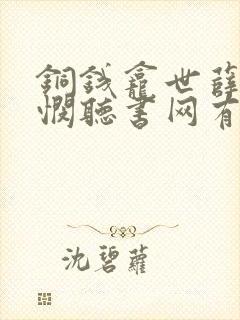 銅錢龕世薛
憫聽書网有
沈碧蘿